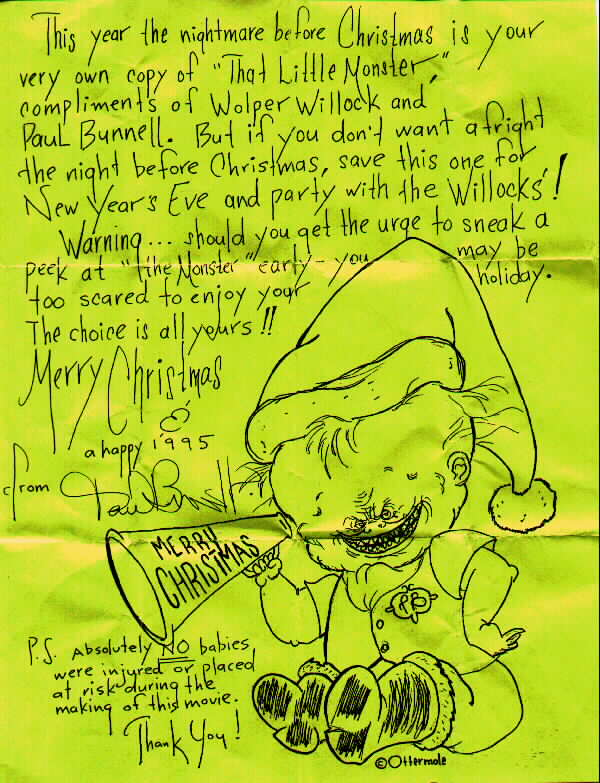 This year the nightmare before Christmas is your
very own copy of "That Little Monster,"
compliments of Wolper Willock and
Paul Bunnell. But if you don't want a fright
the night before Christmas, save this one for
New Year's Eve and party with the Willocks'!
Warning... should you get the urge to sneak a
peek at "the Monster" early - you may be
too scared to enjoy your holiday.
The choice is all yours!!
Merry Christmas
&
a happy 1995
from Paul Bunnell
MERRY
CHRISTMAS
PB
P.S. Absolutely NO babies
were injured or placed
at risk during the
making of this movie.
Thank You!
©Ottermole